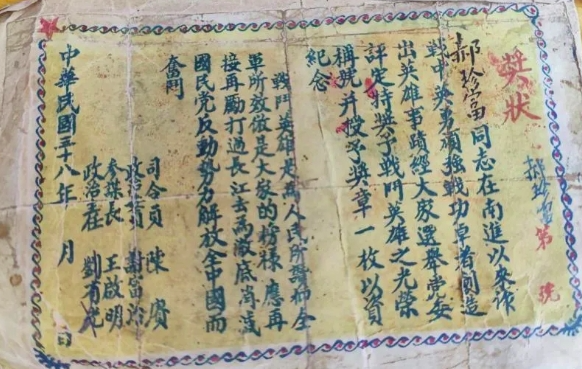 獎狀
第 號
郝珍富同志在南進以來作
戰中英勇頑强戰功卓著創造
出英雄事蹟經大家選舉党委
評定特獎予戰鬥英雄之光榮
稱號并授予奖章一枚以資
紀念
戰鬥英雄是為人民所譽和全
軍所效倣是大家的榜樣應再
接再勵打過長江去為澈底肖滅
國民党反動势力解放全中國而
奮鬥
司令員 陳
政治委員 謝富治
參謀長 王啟明
政治主任 劉有光
中華民國三十八年 月 日